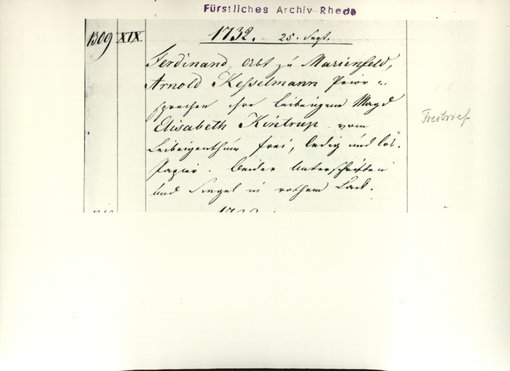 Fürstliches Archiv Rheda
1309 XIX. 1732. 25. Sept.
Ferdinand, Abt zu Marienfeld,
Arnold Kesselmann Prior u.
sprechen ihre leibeigene Magd
Elisabeth Kintrup vom
Leibeigenthum frei, ledig und los.
Freibrief
Papier. Beider Unterschriften
und Siegel in rothem Lack.